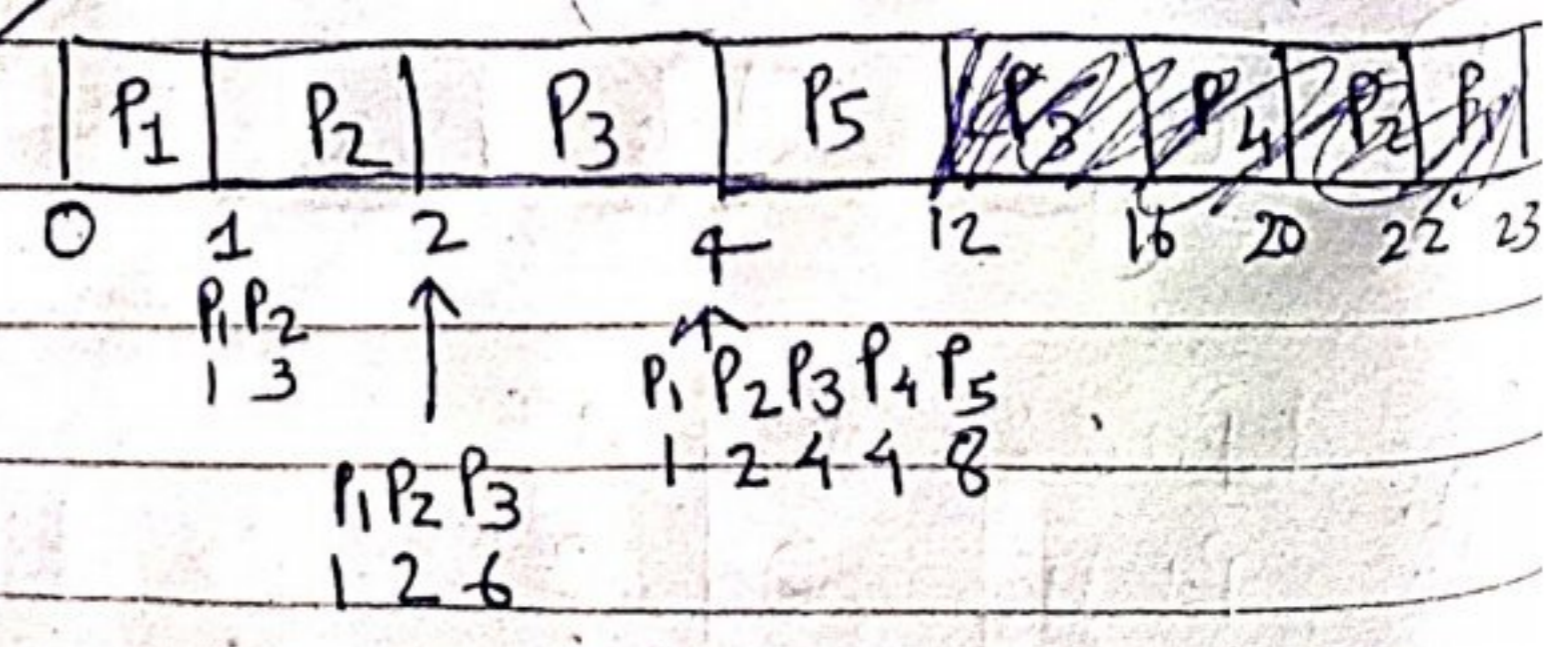 P1 P2 P3 P5 P3 P4 P2 P1
0 1 2 4 12 16 20 22 23
P1 P2
1 3
P1 P2 P3 P4 P5
1 2 4 4 8
P1 P2 P3
1 2 6